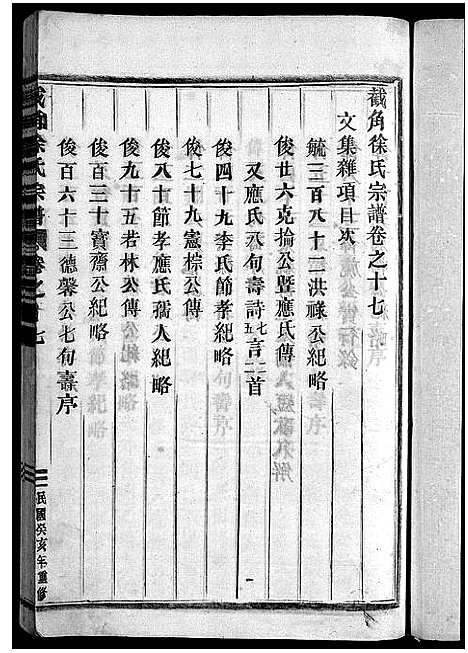 截角徐氏宗譜卷之十七
文集雜項目次
毓三百八十二洪祿公紀略
俊廿六克掄公暨應氏傳
又應氏六旬壽詩七言二首五言一首
俊四十九李氏節孝紀略
俊七十九憲棕公傳
俊八十節孝應氏孺人紀略
俊九十五若林公傳
俊百三十寶齋公紀略
俊百六十三德馨公七旬壽序
截角徐氏宗譜
卷之十七
民國癸亥年重修